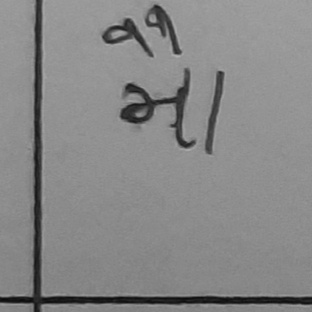 ૧૧
મા